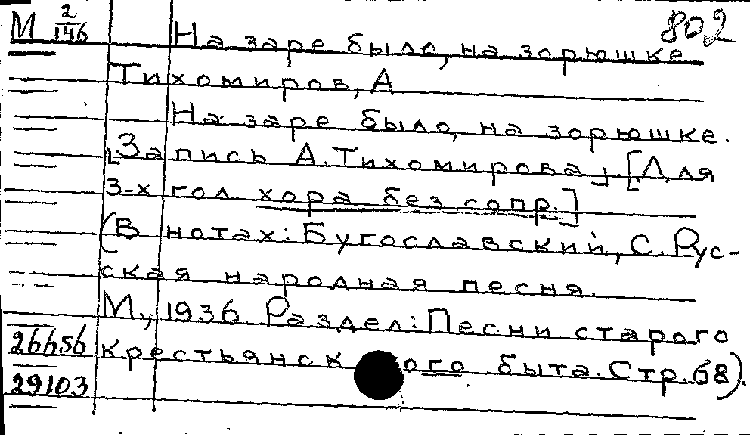 М 2/146 На заре было, на зорюшке 802
Тихомиров, А
На заре было, на зорюшке.
[Запись А. Тихомирова] [Для
3-х гол хора без сопр.]
(В нотах: Бугославский, С. Рус-
ская народная песня.
М., 1936. Раздел: Песни старого
26656 крестьянского быта. Стр. 68).
29103